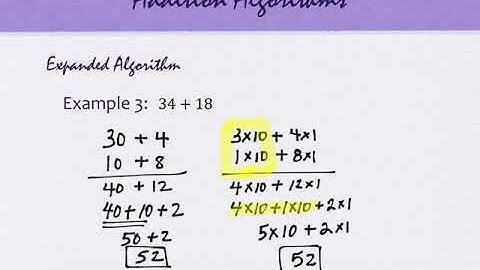 Addition Algorithms
Expanded Algorithm
Example 3: 34 + 18
30 + 4
10 + 8
40 + 12
40+10 + 2
50 + 2
52
3×10 + 4×1
1×10 + 8×1
4×10 + 12×1
4×10+1×10+2×1
5×10 + 2×1
52